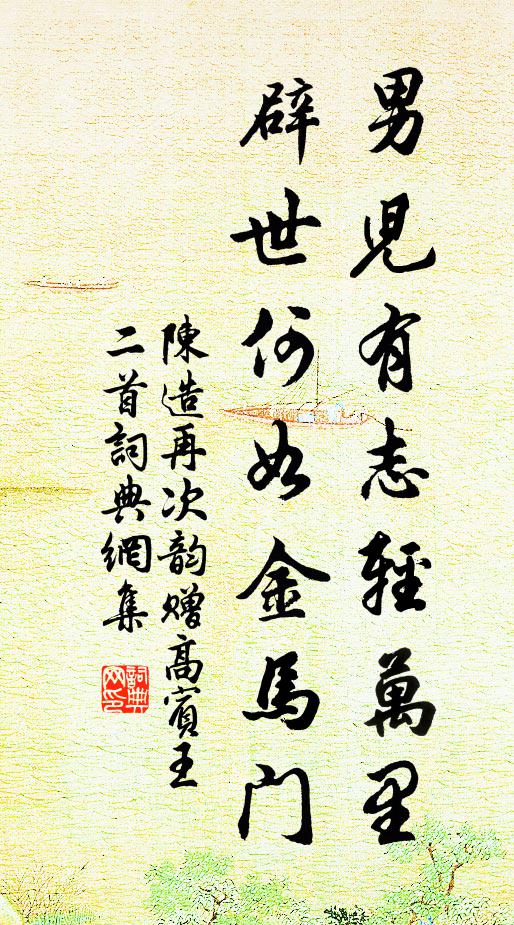 男兒有志輕萬里
辟世何如金馬门
陳造再次韵贈高賓王
二首詞典網集
詞典网印